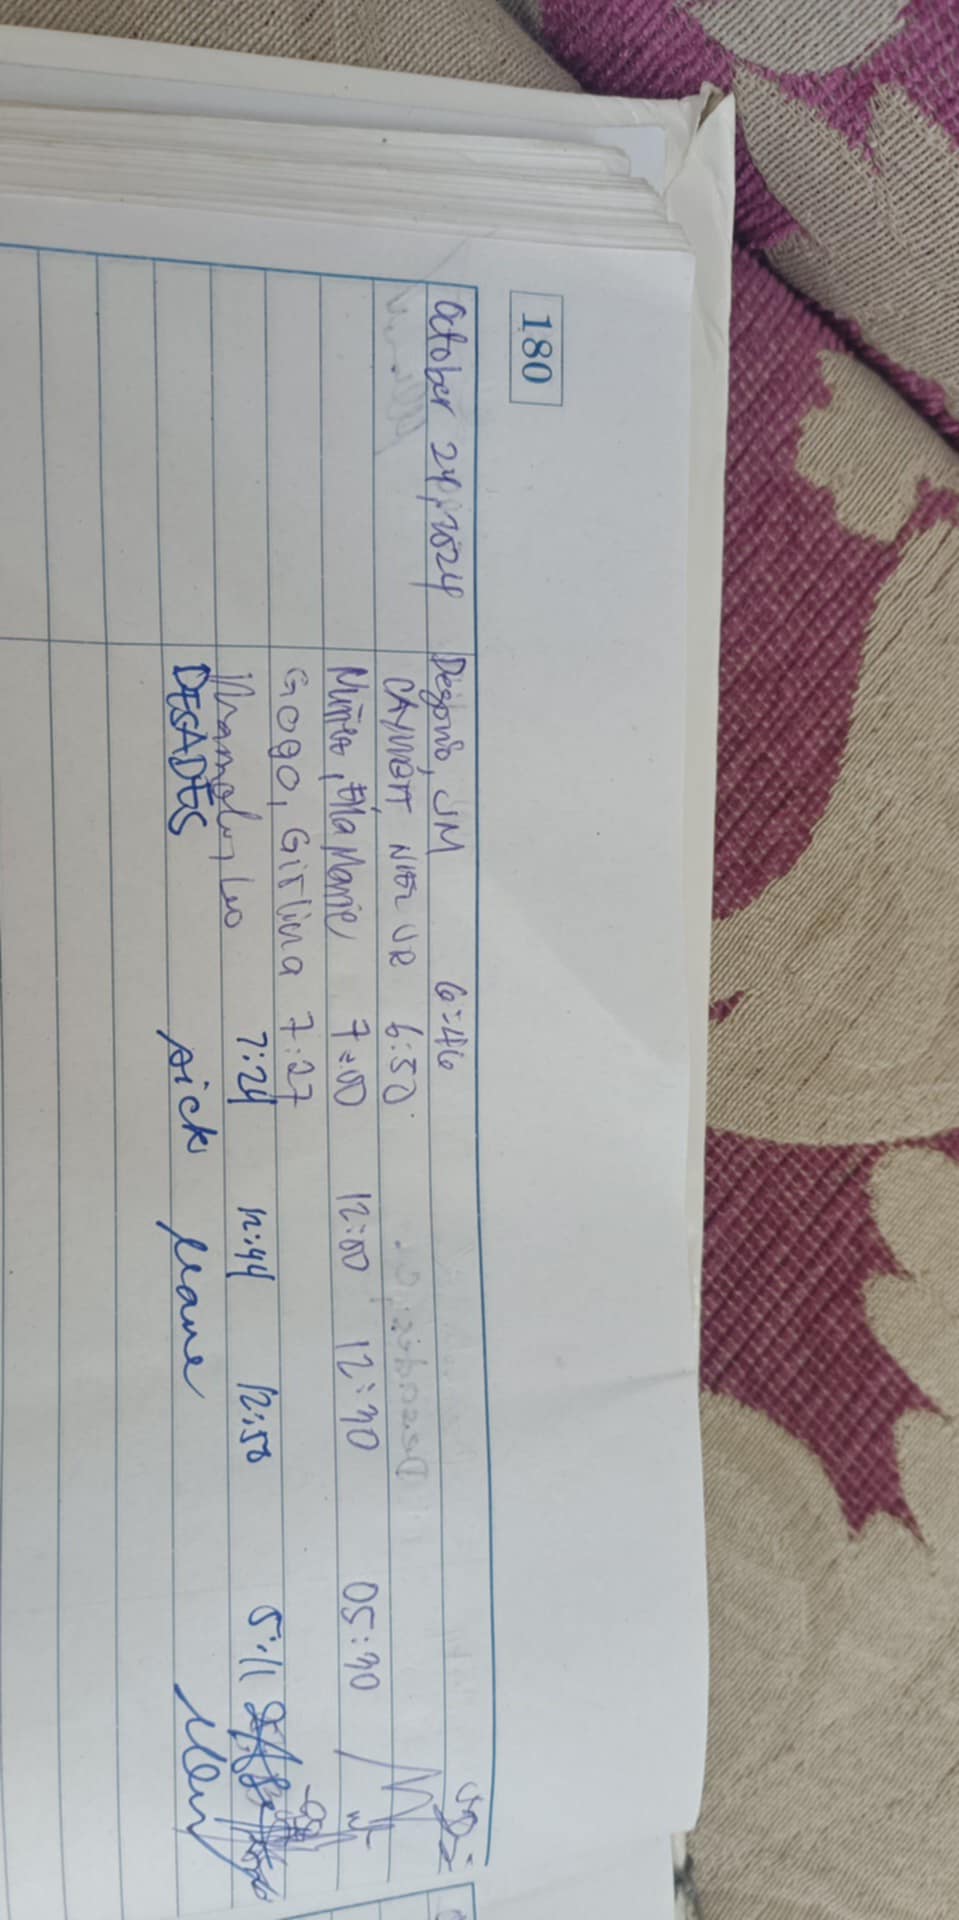 180
October 24, 2024 Degorio, JM 6:46
NIEL JR 6:50
Ella Marie 7:00 12:00 12:30 05:30
Gogo, Girlina 7:27
Leo 7:24 12:44 12:50 5:11
DEGADES sick leave